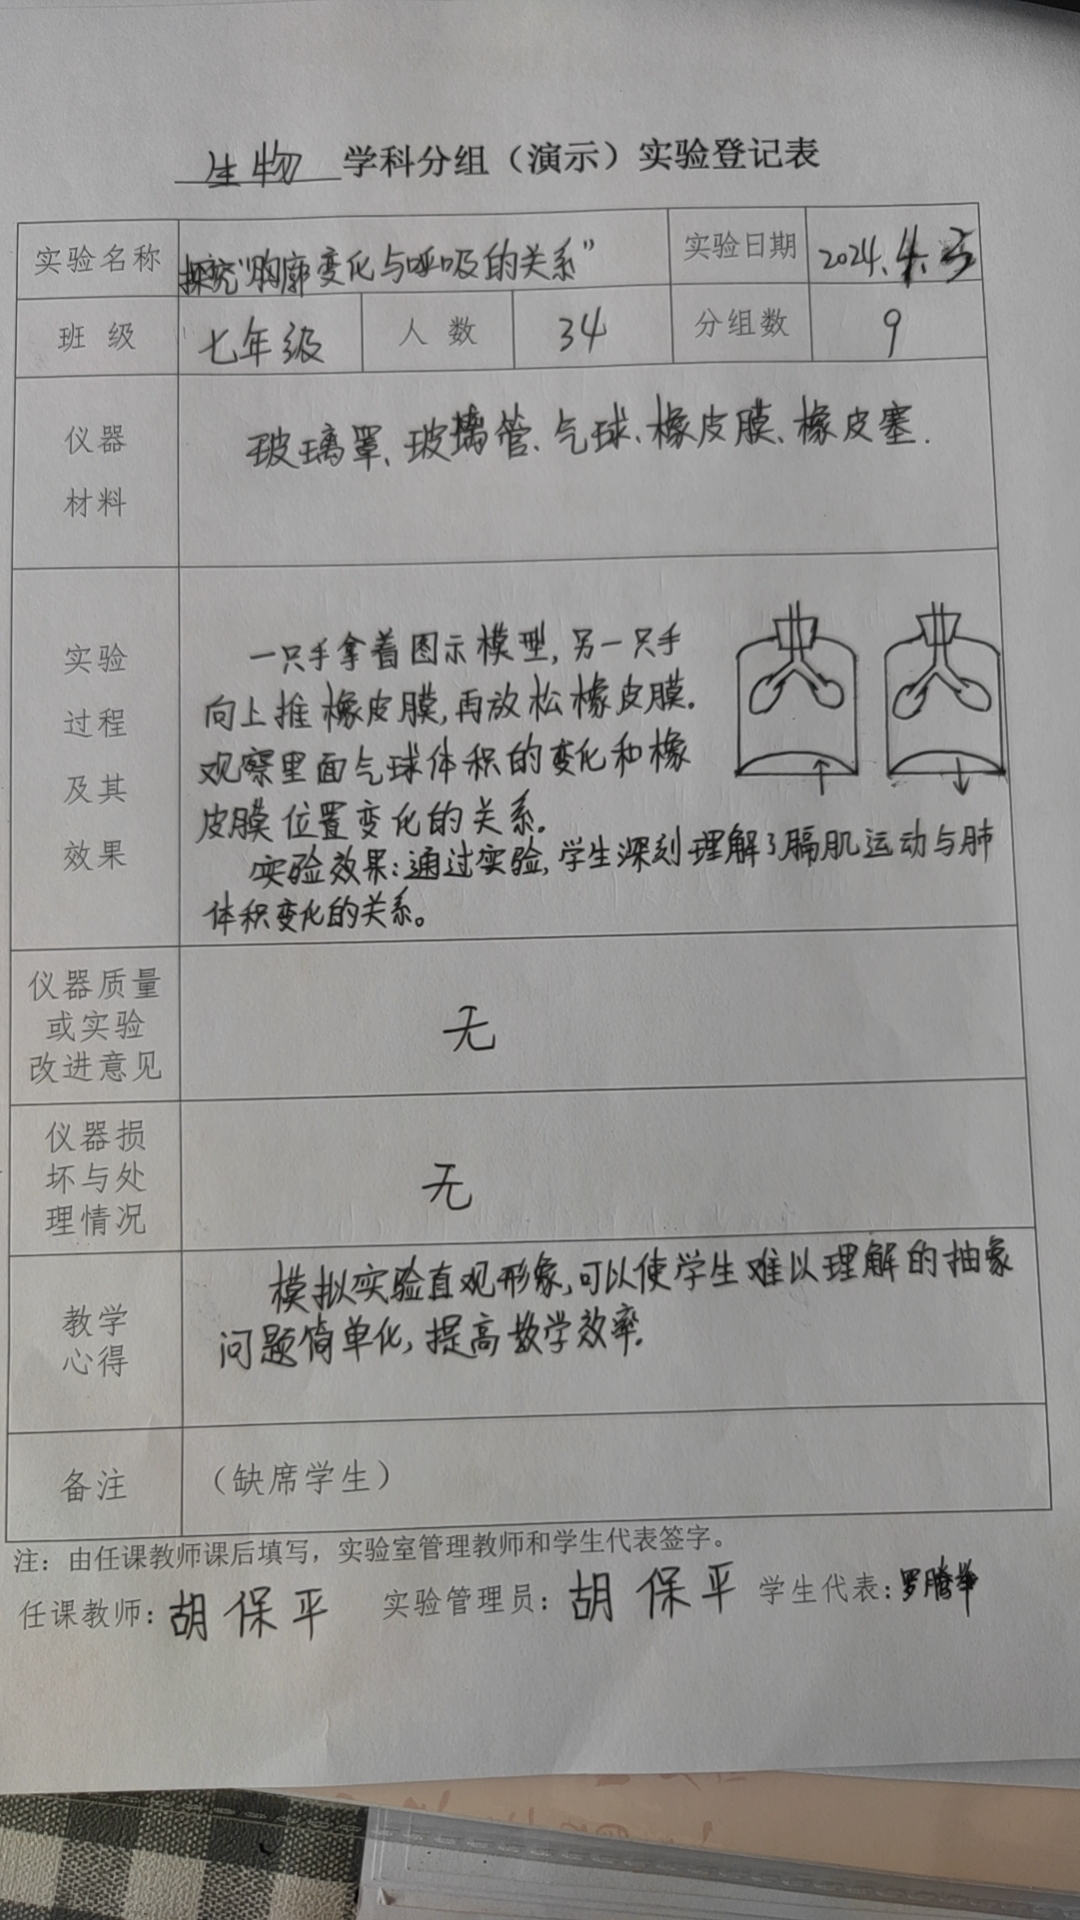 生物 学科分组（演示）实验登记表
实验名称 探究“胸廓变化与呼吸的关系” 实验日期 2024.4.
班 级 七年级 人 数 34 分组数 9
仪器
材料
玻璃罩、玻璃管、气球、橡皮膜、橡皮塞.
实验
过程
及其
效果
一只手拿着图示模型,另一只手
向上推橡皮膜,再放松橡皮膜.
观察里面气球体积的变化和橡
皮膜位置变化的关系.
实验效果:通过实验,学生深刻理解了膈肌运动与肺
体积变化的关系。
仪器质量
或实验
改进意见
无
仪器损
坏与处
理情况
无
教学
心得
模拟实验直观形象,可以使学生难以理解的抽象
问题简单化,提高教学效率.
备注 （缺席学生）
注：由任课教师课后填写，实验室管理教师和学生代表签字。
任课教师：胡保平 实验管理员：胡保平 学生代表：罗腾